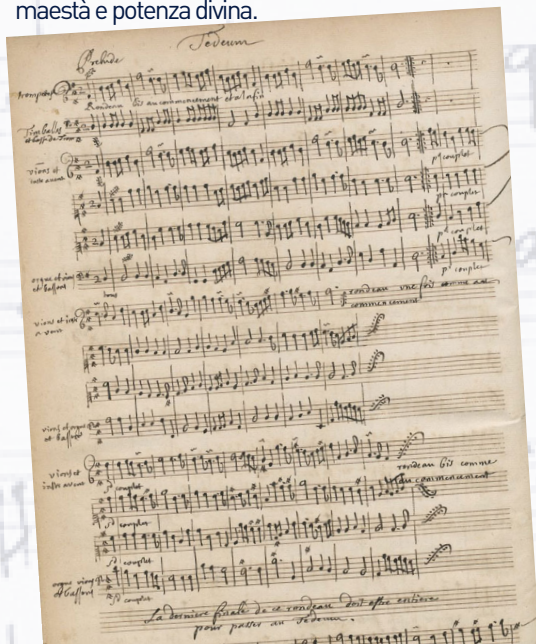 maestà e potenza divina.
Tedeum
Prelude
trompettes
Rondeau bis au commencement et a la fin
Timballes
et basse de trom
viõns et
pr couplet
pr couplet
pr couplet
orgue et viõns
et bassons
pr couplet
tous
rondeau une fois comme au
commencement
viõns et
viõns et orgue
et bassons
viõns et
rondeau bis comme
au commencement
sd couplet
sd couplet
sd couplet
orgue viõns
et bassons
sd couplet
La derniere finale de ce rondeau doit estre entiere
pour passer au Tedeum.